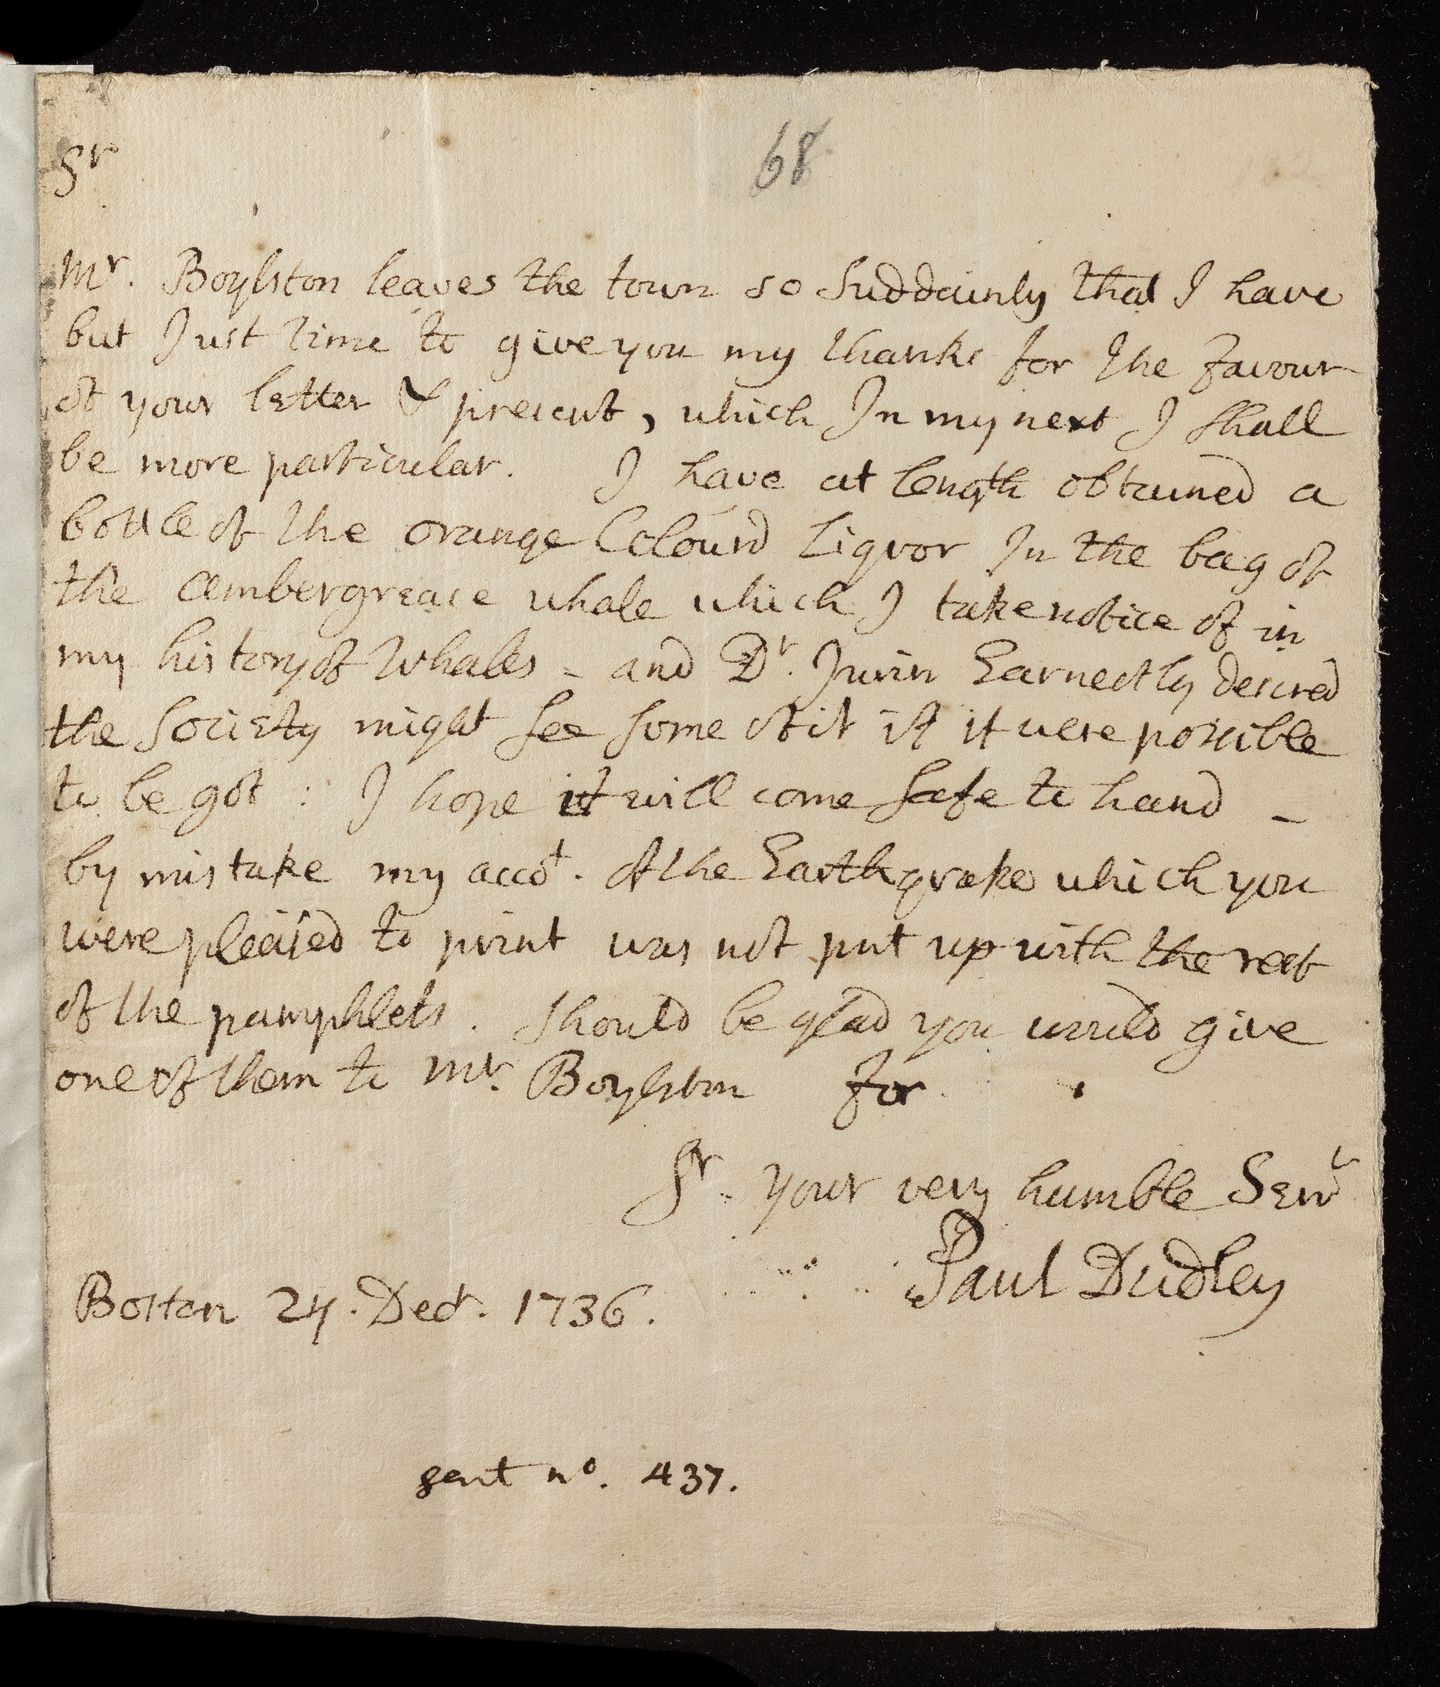 68
Sr
Mr. Boylston leaves the town so Suddainly that I have
but Just time to give you my thanks for the favour
of your letter & present, which In my next I shall
be more particular. I have at length obtained a
bottle of the orange Colourd Liquor In the bag of
the Ambergrease whale which I take notice of in
my history of Whales - and Dr. Jurin Earnestly desired
the Society might see some of it if it were possible
to be got : I hope it will come safe to hand -
by mistake my accot. of the Earthquake which you
were pleased to print was not put up with the rest
of the pamphlets. Should be glad you would give
one of them to Mr. Boylston for
Sr. your very humble Servt
Paul Dudley
Boston 24. Decr. 1736.
sent no. 437.